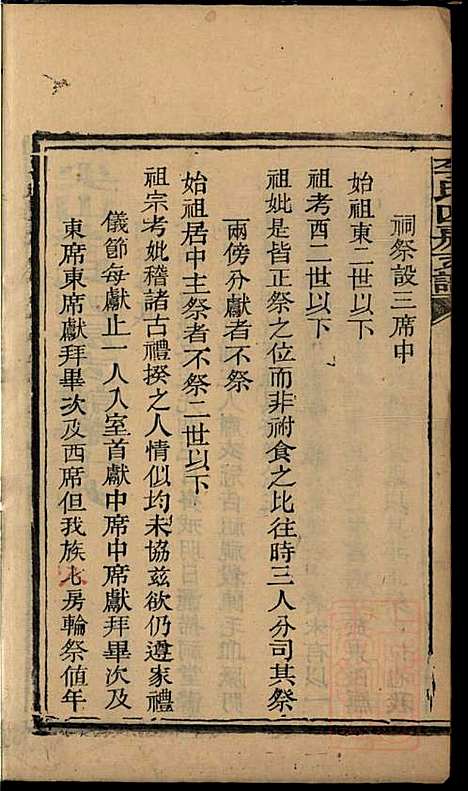 李氏四房支譜
祠祭設三席中
始祖東二世以下
祖考西二世以下
祖妣是皆正祭之位而非祔食之比往時三人分司其祭
兩傍分獻者不祭
始祖居中主祭者不祭二世以下
祖宗考妣稽諸古禮揆之人情似均未協茲欲仍遵家禮
儀節每獻止一人入室首獻中席中席獻拜畢次及
東席東席獻拜畢次及西席但我族七房輪祭値年